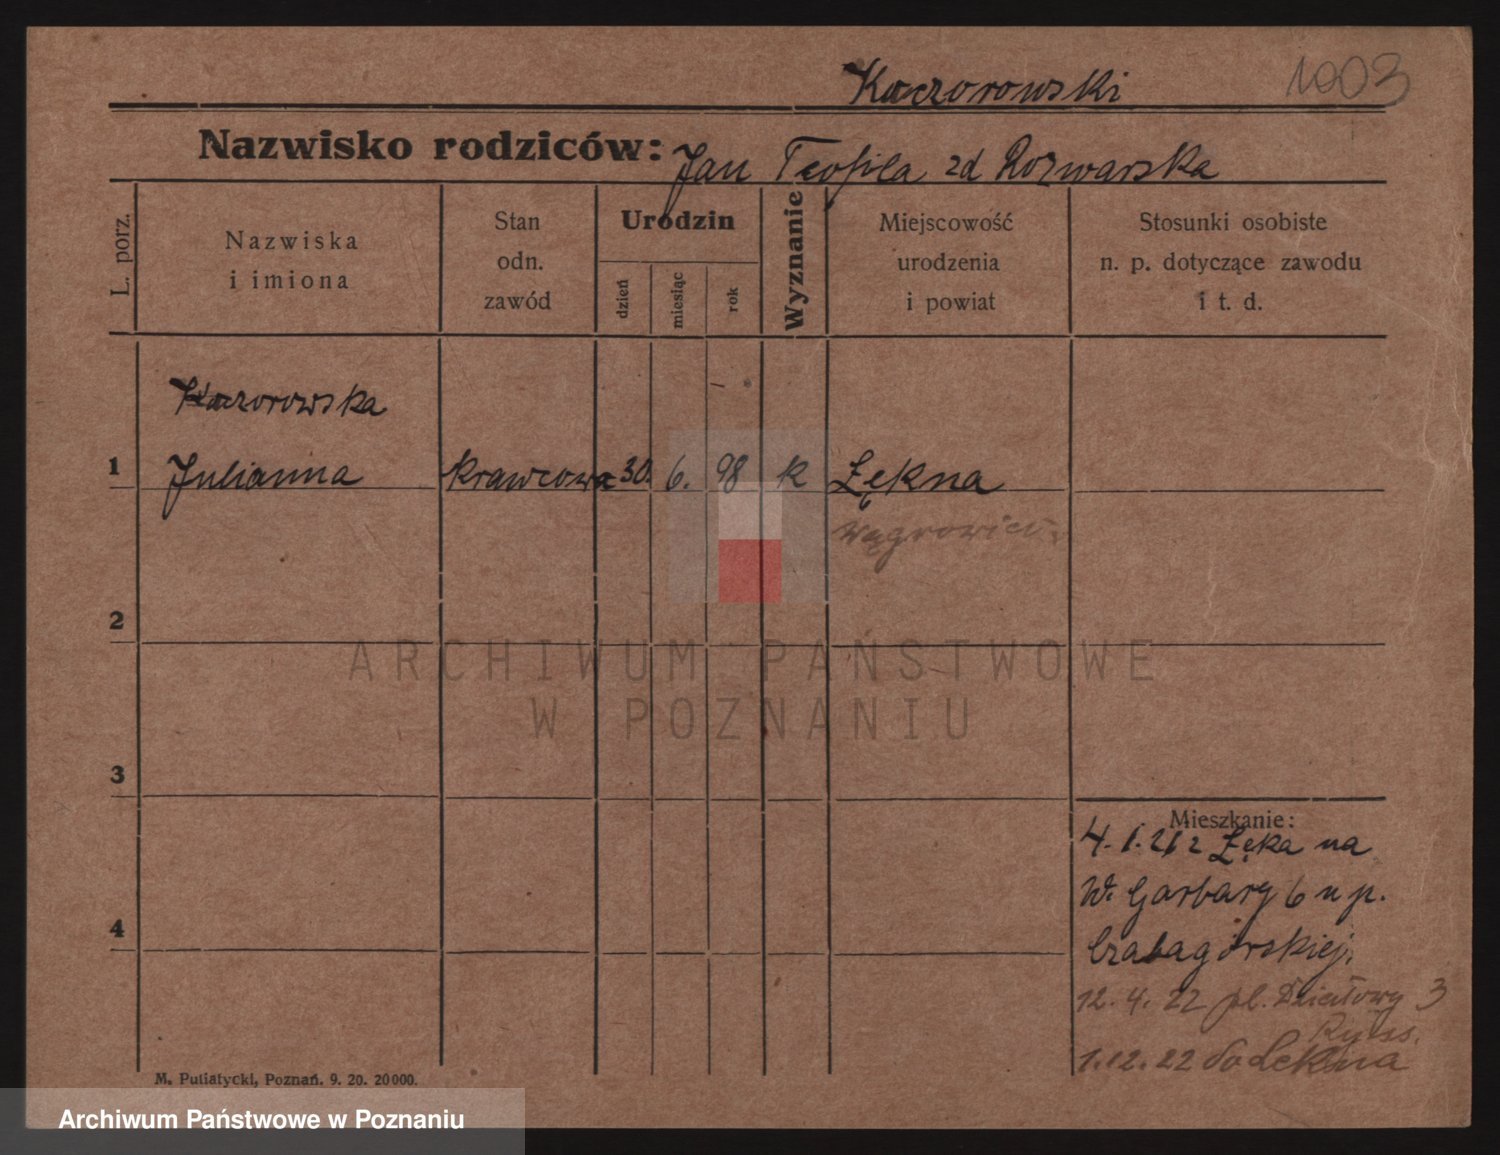 Kaczorowski 1003
Nazwisko rodziców: Jan Teofila zd Rozwarska
L. porz.
Nazwiska
i imiona
Stan
odn.
zawód
Urodzin
dzień
miesiąc
rok
Wyznanie
Miejscowość
urodzenia
i powiat
Stosunki osobiste
n. p. dotyczące zawodu
i t. d.
Kaczorowska
1 Julianna krawcowa 30. 6. 98 k Łękna
Wągrowiec
2
3
4
Mieszkanie:
4. 1. 21 z Łęka na
W. Garbary 6 u p.
12. 4. 22 pl. Działowy 3
1.12.22 do Łekna
M. Putiatycki, Poznań. 9. 20. 20000.
ARCHIWUM PAŃSTWOWE
W POZNANIU
Archiwum Państwowe w Poznaniu